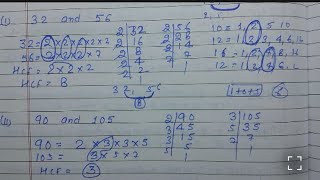 (I) 32 and 56
32 = 2 × 2 × 2 × 2 × 2
56 = 2 × 2 × 2 × 7
HCF = 2 × 2 × 2
HCF = 8
2 32
2 16
2 8
2 4
2 2
1
2 56
2 28
2 14
7 7
1
32, 56
8
10 = 1, 2, 5, 10
12 = 1, 2, 3, 4, 6, 12
12 = 1, 2,
1+0+5
6
(II) 90 and 105
90 = 2 × 3 × 3 × 5
105 = 3 × 5 × 7
HCF = 3
2 90
3 45
3 15
5 5
1
3 105
5 35
7 7
1